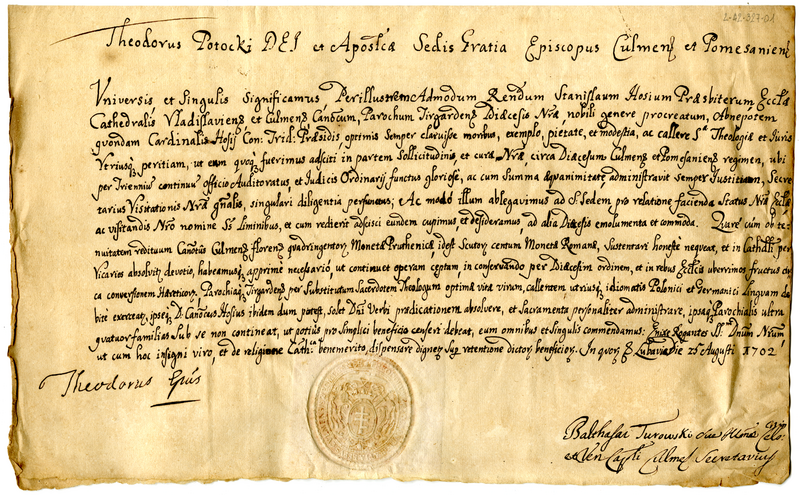 2-A2-027-01
Theodorus Potocki DEI et Apost:cæ Sedis Gratia Episcopus Culmen: et Pomesanien:
Universis et Singulis Significamus, Perillustrem Admodum Rendum Stanislaum Hosium Præsbiterum Eccl:æ
Cathedralis Vladislaviens: et Culmens: Can:cum, Parochum Tirgardens: Diæcesis Nræ nobili genere procreatum, Abnepotem
quondam Cardinalis Hosij Con: Trid: Præsidis, optimis Semper claruisse moribus, exemplo, pietate, et modestia, ac callere S:æ Theologiæ et Iuris
Utriusq peritiam, ut cum quoq fuerimus adsciti in partem Sollicitudinis, et curæ Nræ, circa Diæcesum Culmens: et Pomesaniens: regimen, ubi
per Triennium continuu officio Auditoratus, et Iudicis Ordinarij functus gloriose, ac cum Summa æquanimitate administravit Semper Iustitiam, Secre
tarius Visitationis Nræ gnâlis, singulari diligentia perfunctus; Ac modo illum ablegavimus ad S: Sedem pro relatione facienda Status Nræ Eccl:æ
ac visitandis Nro nomine SS: Liminibus, et cum redierit adscisci eundem cupimus, et desideramus, ad alia Diæcesis emolumenta et commoda. Quare cùm ob te-
nuitatem redituum Can:tus Culmens: florens: quadringentor Monetæ Pruthenicæ, idest Scutor: centum Monetæ Romanæ, Sustentari honeste nequeat, et in Cathdli per
Vicarios absolvit devotio, habeamusq apprimè necessariò, ut continuet operam ceptam in conservando per Diæcesim ordinem, et in rebus Eccl:cis uberrimos fructus cir
ca conversionem Hæreticor: Parochiaq Tirgardens: per Substitutum Sacerdotem Theologum optimæ vitæ virum, callentem utriusq idiomatis Polonici et Germanici linguam de
bitè exerceat, ipseq D: Can:cus Hosius ibidem dum potest, solet Dni Verbi prædicationem absolvere, et Sacramenta personaliter administrare, ipsaq Parochialis ultra
quatuor familias Sub se non contineat, ut potiùs pro simplici beneficio censeri debeat, eum omnibus et Singulis commendamus: SS:mum Dnum Nrum,
ut cum hoc insigni viro, et de religione Cath:ca benemerito, dispensare dignet Sup retentione dictor: beneficior: In quor: Lubaviæ die 25 Augusti 1702
Theodorus Epûs
Balthasar Turowski
Secretarius